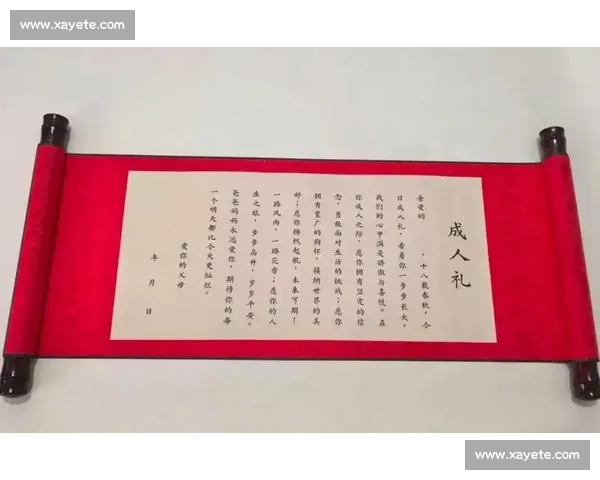 www.xayete.com
成人礼
亲爱的 ，十八载春秋，今
日成人礼，看着你一步步长大，
我们的心中满是骄傲与喜悦。在
你成人之际，愿你拥有坚定的信
念，勇敢面对生活的挑战；愿你
拥有宽广的胸怀，接纳世界的美
好；愿你扬帆起航，未来可期！
一路风雨，一路花香；愿你的人
生之旅，步步高升，岁岁平安。
爸爸妈妈永远爱你，期待你的每
一个明天都比今天更灿烂。
爱你的父母
年 月 日
www.xayete.com